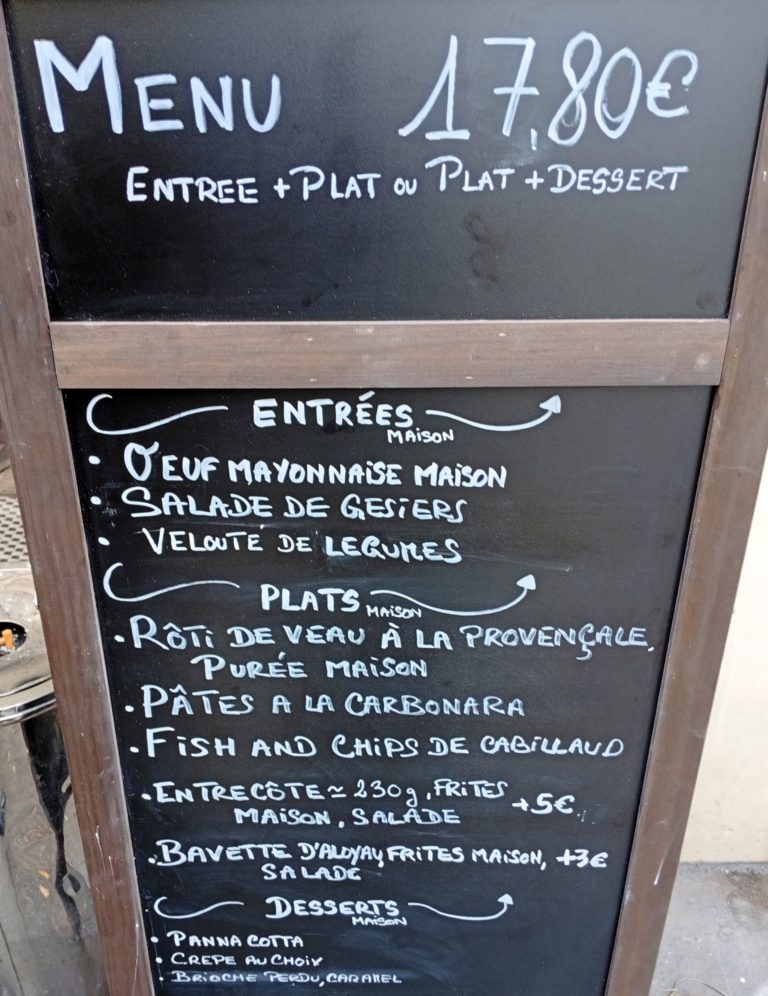 MENU 17,80€
ENTREE + PLAT OU PLAT + DESSERT
ENTRÉES
MAISON
• OEUF MAYONNAISE MAISON
• SALADE DE GESIERS
• VELOUTÉ DE LEGUMES
PLATS MAISON
• RÔTI DE VEAU À LA PROVENÇALE,
PURÉE MAISON
• PÂTES A LA CARBONARA
• FISH AND CHIPS DE CABILLAUD
• ENTRECÔTE ≃ 230g, FRITES +5€
MAISON, SALADE
• BAVETTE D'ALOYAU, FRITES MAISON, +3€
SALADE
DESSERTS
MAISON
• PANNA COTTA
• CREPE AU CHOIX
• BRIOCHE PERDU, CARAMEL